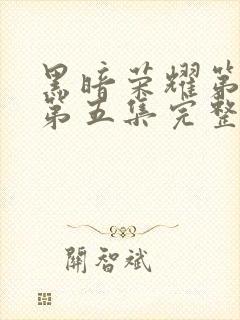 黑暗荣耀第
第五集完整
關智斌